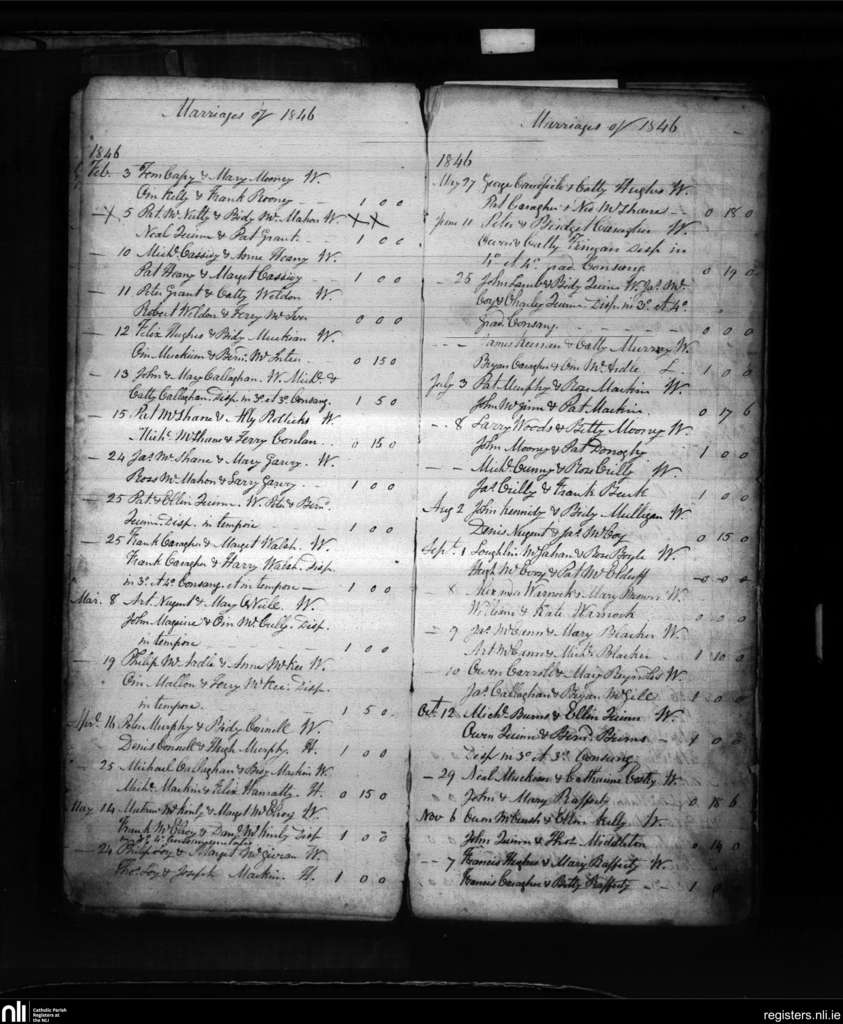 Marriages of 1846
1846
Feb. 3 Tom Capy & Mary Mooney W.
Oin Kelly & Frank Rooney 1 0 0
5 Pat Mc Nally & Bidy Mc Mahon W. X X
Neal Quinn & Pat Grant 1 0 0
10 Michl. Cassidy & Anne Heany W.
Pat Heany & Marget Cassidy 1 0 0
11 Peter Grant & Catty Weldon W.
Robert Weldon & Terry Mc 0 0 0
12 Felix Hughes & Bidy Muckian W.
Oin Muckian & Bernd. Mc 0 15 0
13 John & Mary Callaghan. W. Michl. &
Catty Callaghan. Disp. in 3o. et 3o. Consang. 1 5 0
15 Pat McShane & W.
Michl. McShane & Terry Conlan 0 15 0
24 Jas. McShane & Mary Garvy. W.
Ross McMahon & Larry Garvy. 1 0 0
25 Pat. & Ellin Quinn. W. Peter & Bernd.
Quinn. Disp. in tempore 1 0 0
25 Frank Caragher & Marget Walsh. W.
Frank Caragher & Harry Walsh. Disp.
in 3o. et 4o. Consang. et in tempore 1 0 0
Mar. 8 Art. Nugent & Mary O'Neill. W.
John Maguire & Oin McCully. Disp.
in tempore 1 0 0
19 Philip McArdle & Anne McKee W.
Oin Mallon & Terry McKee. Disp.
in tempore. 1 5 0
Apr. 16 Peter Murphy & Bidy Connell W.
Denis Connell & Hugh Murphy. H. 1 0 0
25 Michael Callaghan & Bidy Mackin W.
Michl. Mackin & Felix Hanratty. H. 0 15 0
May 14 McKinly & Marget McElroy W.
Frank McElroy & Danl. McKinly Disp 1 0 0
24 Philip Loy & Marget McGivran W.
Thos. Loy & Joseph Mackin. H. 1 0 0
Marriages of 1846
1846
May 27 George & Catty Hughes W.
Pat Caragher & McShane 0 18 0
June 11 Peter & Bridget Caragher W.
Owen & Catty Finigan Disp in
4o. et 4o. grad. Consang. 0 19 0
25 John Lamb & Bidy Quinn W. Jas. Mc-
Coy & Charley Quinn. Disp. in 3o. et 4o.
grad. Consang. 0 0 0
James & Catty Murray W.
Bryan Caragher & Oin McArdle 1 0 0
July 3 Pat Murphy & Rose Mackin W.
John McGinn & Pat Mackin. 0 17 6
8 Larry Woods & Betty Mooney W.
John Mooney & Pat Donoghy 1 0 0
Michl. Cunny & Rose Crilly W.
Jas. Crilly & Frank 1 0 0
Aug 2 John Kennedy & Bidy Mulligan W.
Denis Nugent & Jas. McCoy 0 15 0
Sept. 1 Loughlin McMahan & Rose Boyle W.
Hugh McEvoy & Pat McElduff 0 0 0
x Warnock & Mary Brown W.
William & Kate Warnock 0 0 0
9 Jas. McCann & Mary Blacker W.
Art McCann & Michl. Blacker 1 10 0
10 Owen Carroll & Mary Reynolds W.
Jas. Callaghan & Bryan McGill 1 0 0
Oct. 12 Michl. Burns & Ellin Quinn W.
Owen Quinn & Bernd. Burns 1 0 0
Disp in 3o. et 3o. Consang
29 Neal Muckean & Catharine W.
John & Mary Rafferty 0 18 6
Nov 6 Owen & Ellen Kelly W.
John Quinn & Thos. Middleton 0 14 0
7 Francis Hughes & Mary Rafferty W.
Francis Caragher & Betty Rafferty 1 0
nli
Catholic Parish
Registers at
the NLI
registers.nli.ie